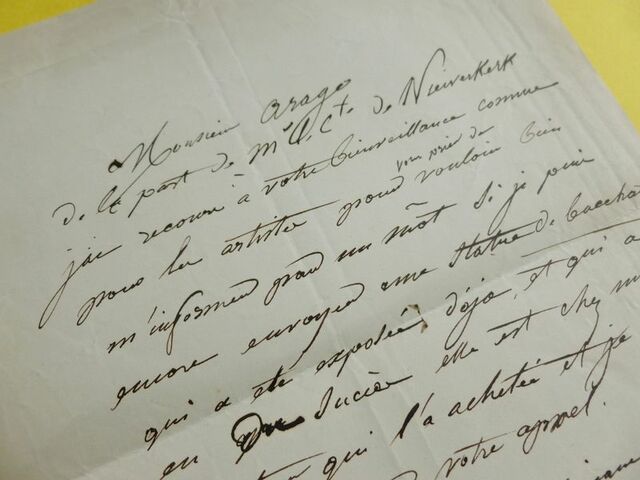 Monsieur Arago
de la part de Mr le Cte de Nieuwerkerk
j'ai recours à votre bienveillance connue
pour les artistes pour
vous prier de
vouloir bien
m'informer par un môt si je puis
encore envoyer une Statue de Baccha
qui a été exposée déja, et qui a
en Suède elle est chez m
qui l'a achetée et je
votre appel.